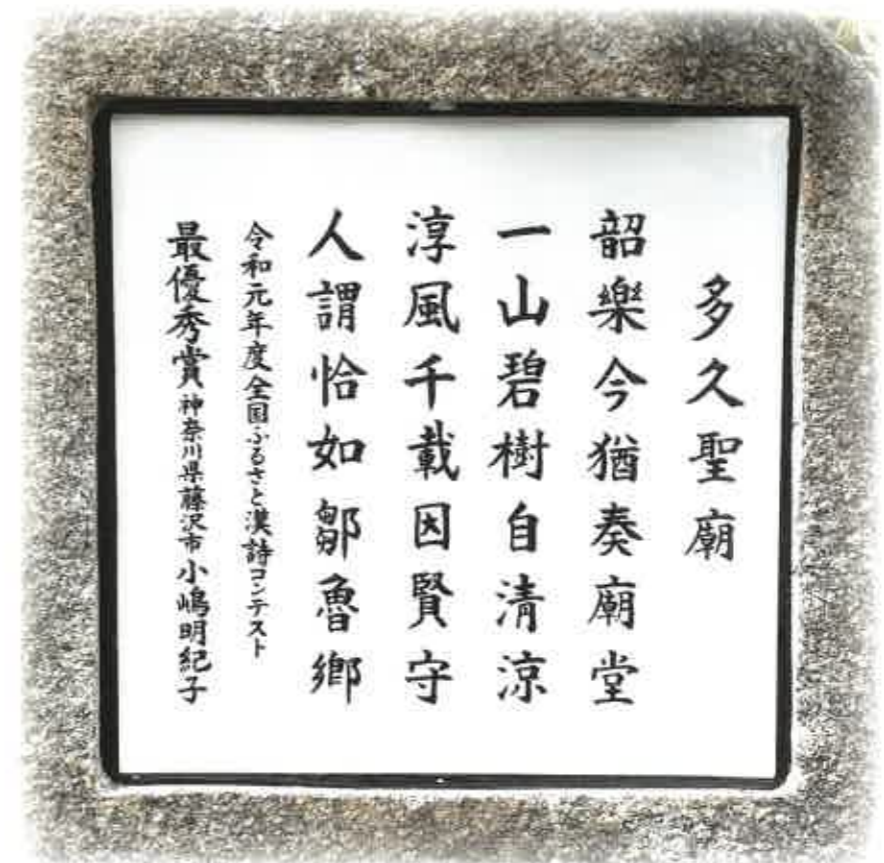 多久聖廟
韶樂今猶奏廟堂
一山碧樹自清涼
淳風千載因賢守
人謂恰如鄒魯鄉
令和元年度全国ふるさと漢詩コンテスト
最優秀賞 神奈川県藤沢市 小嶋明紀子